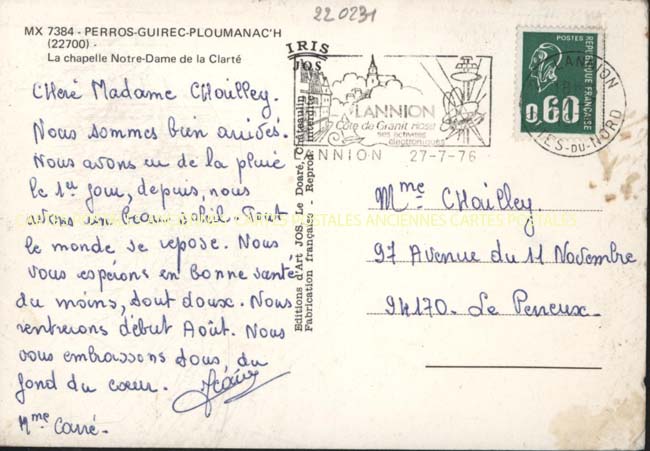 MX 7384 - PERROS-GUIREC-PLOUMANAC'H
(22700) -
La chapelle Notre-Dame de la Clarté
220231
IRIS
JOS
Chère Madame CHailley.
Nous sommes bien arrivés.
Nous avons eu de la pluie
le 1er jour, depuis, nous
avons un beau soleil. Tout
le monde se repose. Nous
vous espérons en bonne santé
du moins, tout doux. Nous
rentrerons début Août. Nous
vous embrassons tous du
fond du cœur.
Mme Carré.
Editions d'Art JOS, Le Doaré, Châteaulin
Fabrication française - Reprod. interdite
LANNION
Côte de Granit Rose
ses activités
électroniques
LANNION 27-7-76
POSTES
REPUBLIQUE FRANÇAISE
0,60
LANNION
CÔTES-DU-NORD
Mme CHailley.
97 Avenue du 11 Novembre
94170. Le Perreux.
CARTES POSTALES ANCIENNES CARTES POSTALES